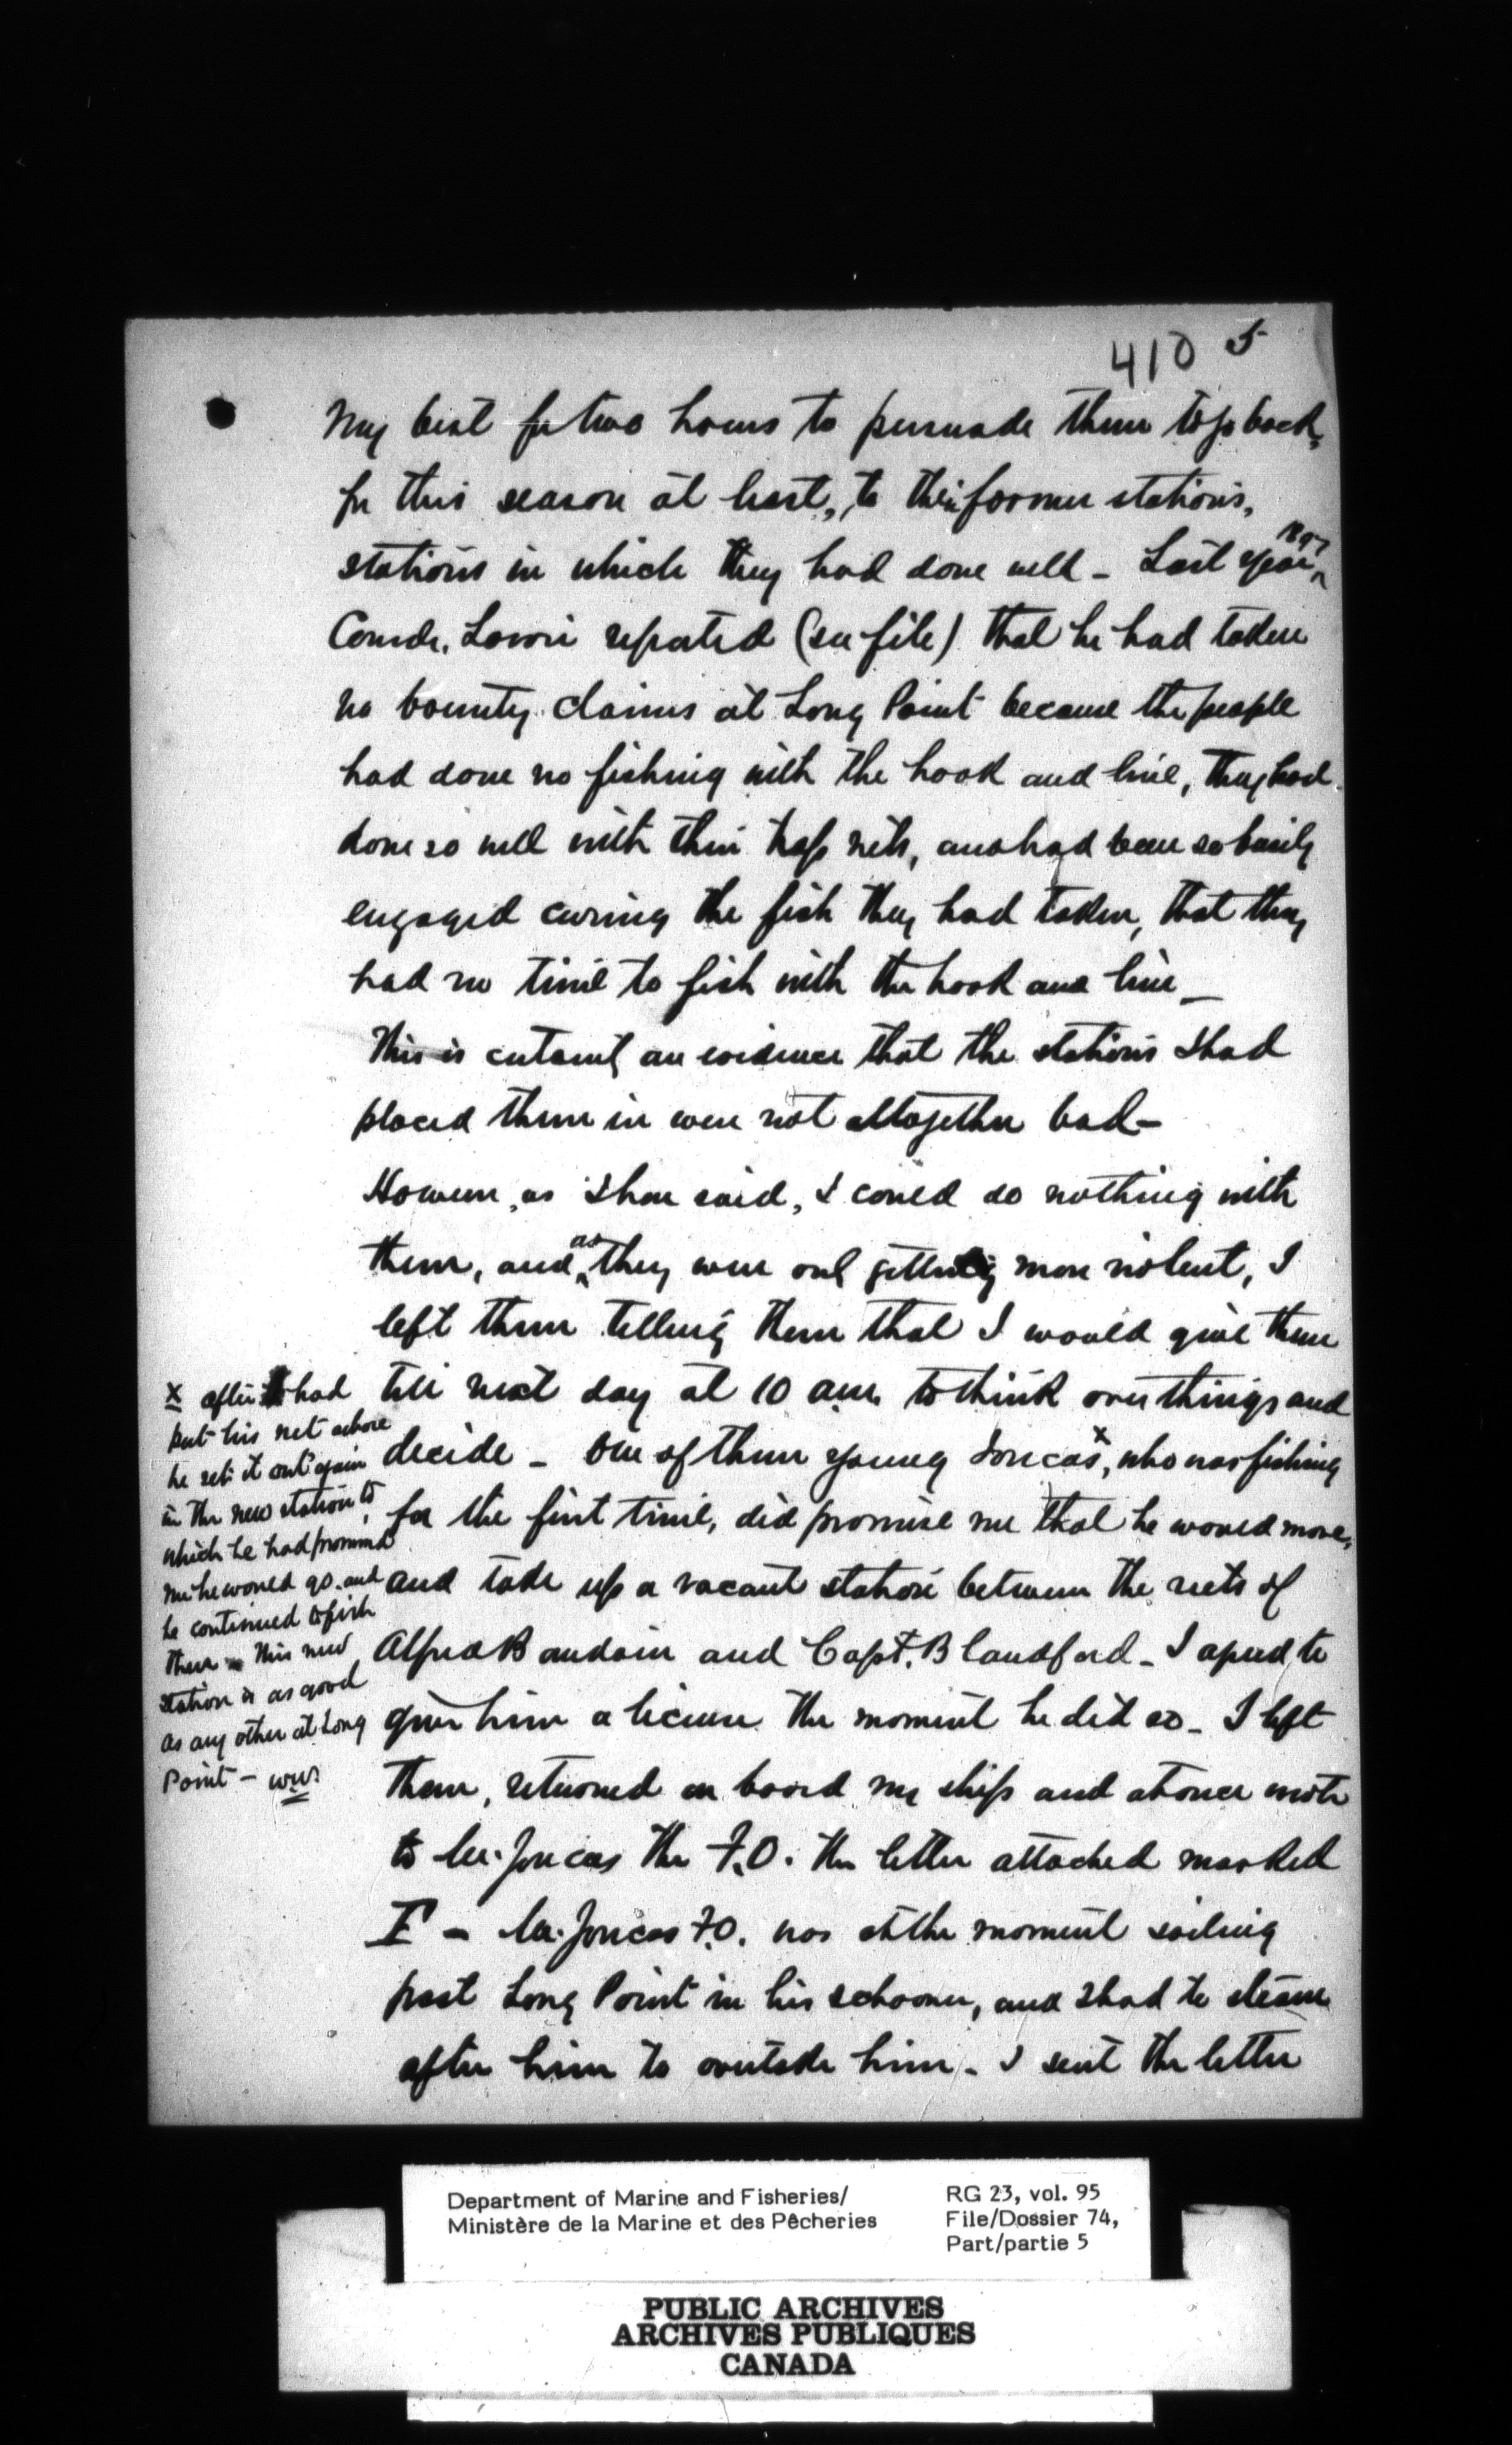 410 5
My best for two hours to persuade them to go back,
for this season at least, to their former stations,
stations in which they had done well - Last year,
Comdr. reported (see file) that he had taken
no bounty claims at Long Point because the people
had done no fishing with the hook and line, they had
done so well with their trap nets, and had been so busily
engaged curing the fish they had taken, that they
had no time to fish with the hook and line -
This is certainly an evidence that the stations I had
placed them in were not altogether bad -
However, as I have said, I could do nothing with
them, and as they were only getting more violent, I
left them telling them that I would give them
till next day at 10 a.m. to think over things and
decide - One of them young Joncas x, who was fishing
for the first time, did promise me that he would move,
and take up a vacant station between the nets of
Alfred Baudoin and Capt. Blandford - I agreed to
give him a license the moment he did so - I left
them, returned on board my ship and at once wrote
to Mr. Joncas the F.O. the letter attached marked
F - Mr. Joncas F.O. was at the moment sailing
past Long Point in his schooner, and I had to steam
after him to overtake him - I sent the letter
x after he had
put his net ashore
he set it out again
in the new station to
which he had promised
me he would go. and
he continued to fish
there - This new
station is as good
as any other at Long
Point -
Department of Marine and Fisheries/
Ministère de la Marine et des Pêcheries
RG 23, vol. 95
File/Dossier 74,
Part/partie 5
PUBLIC ARCHIVES
ARCHIVES PUBLIQUES
CANADA